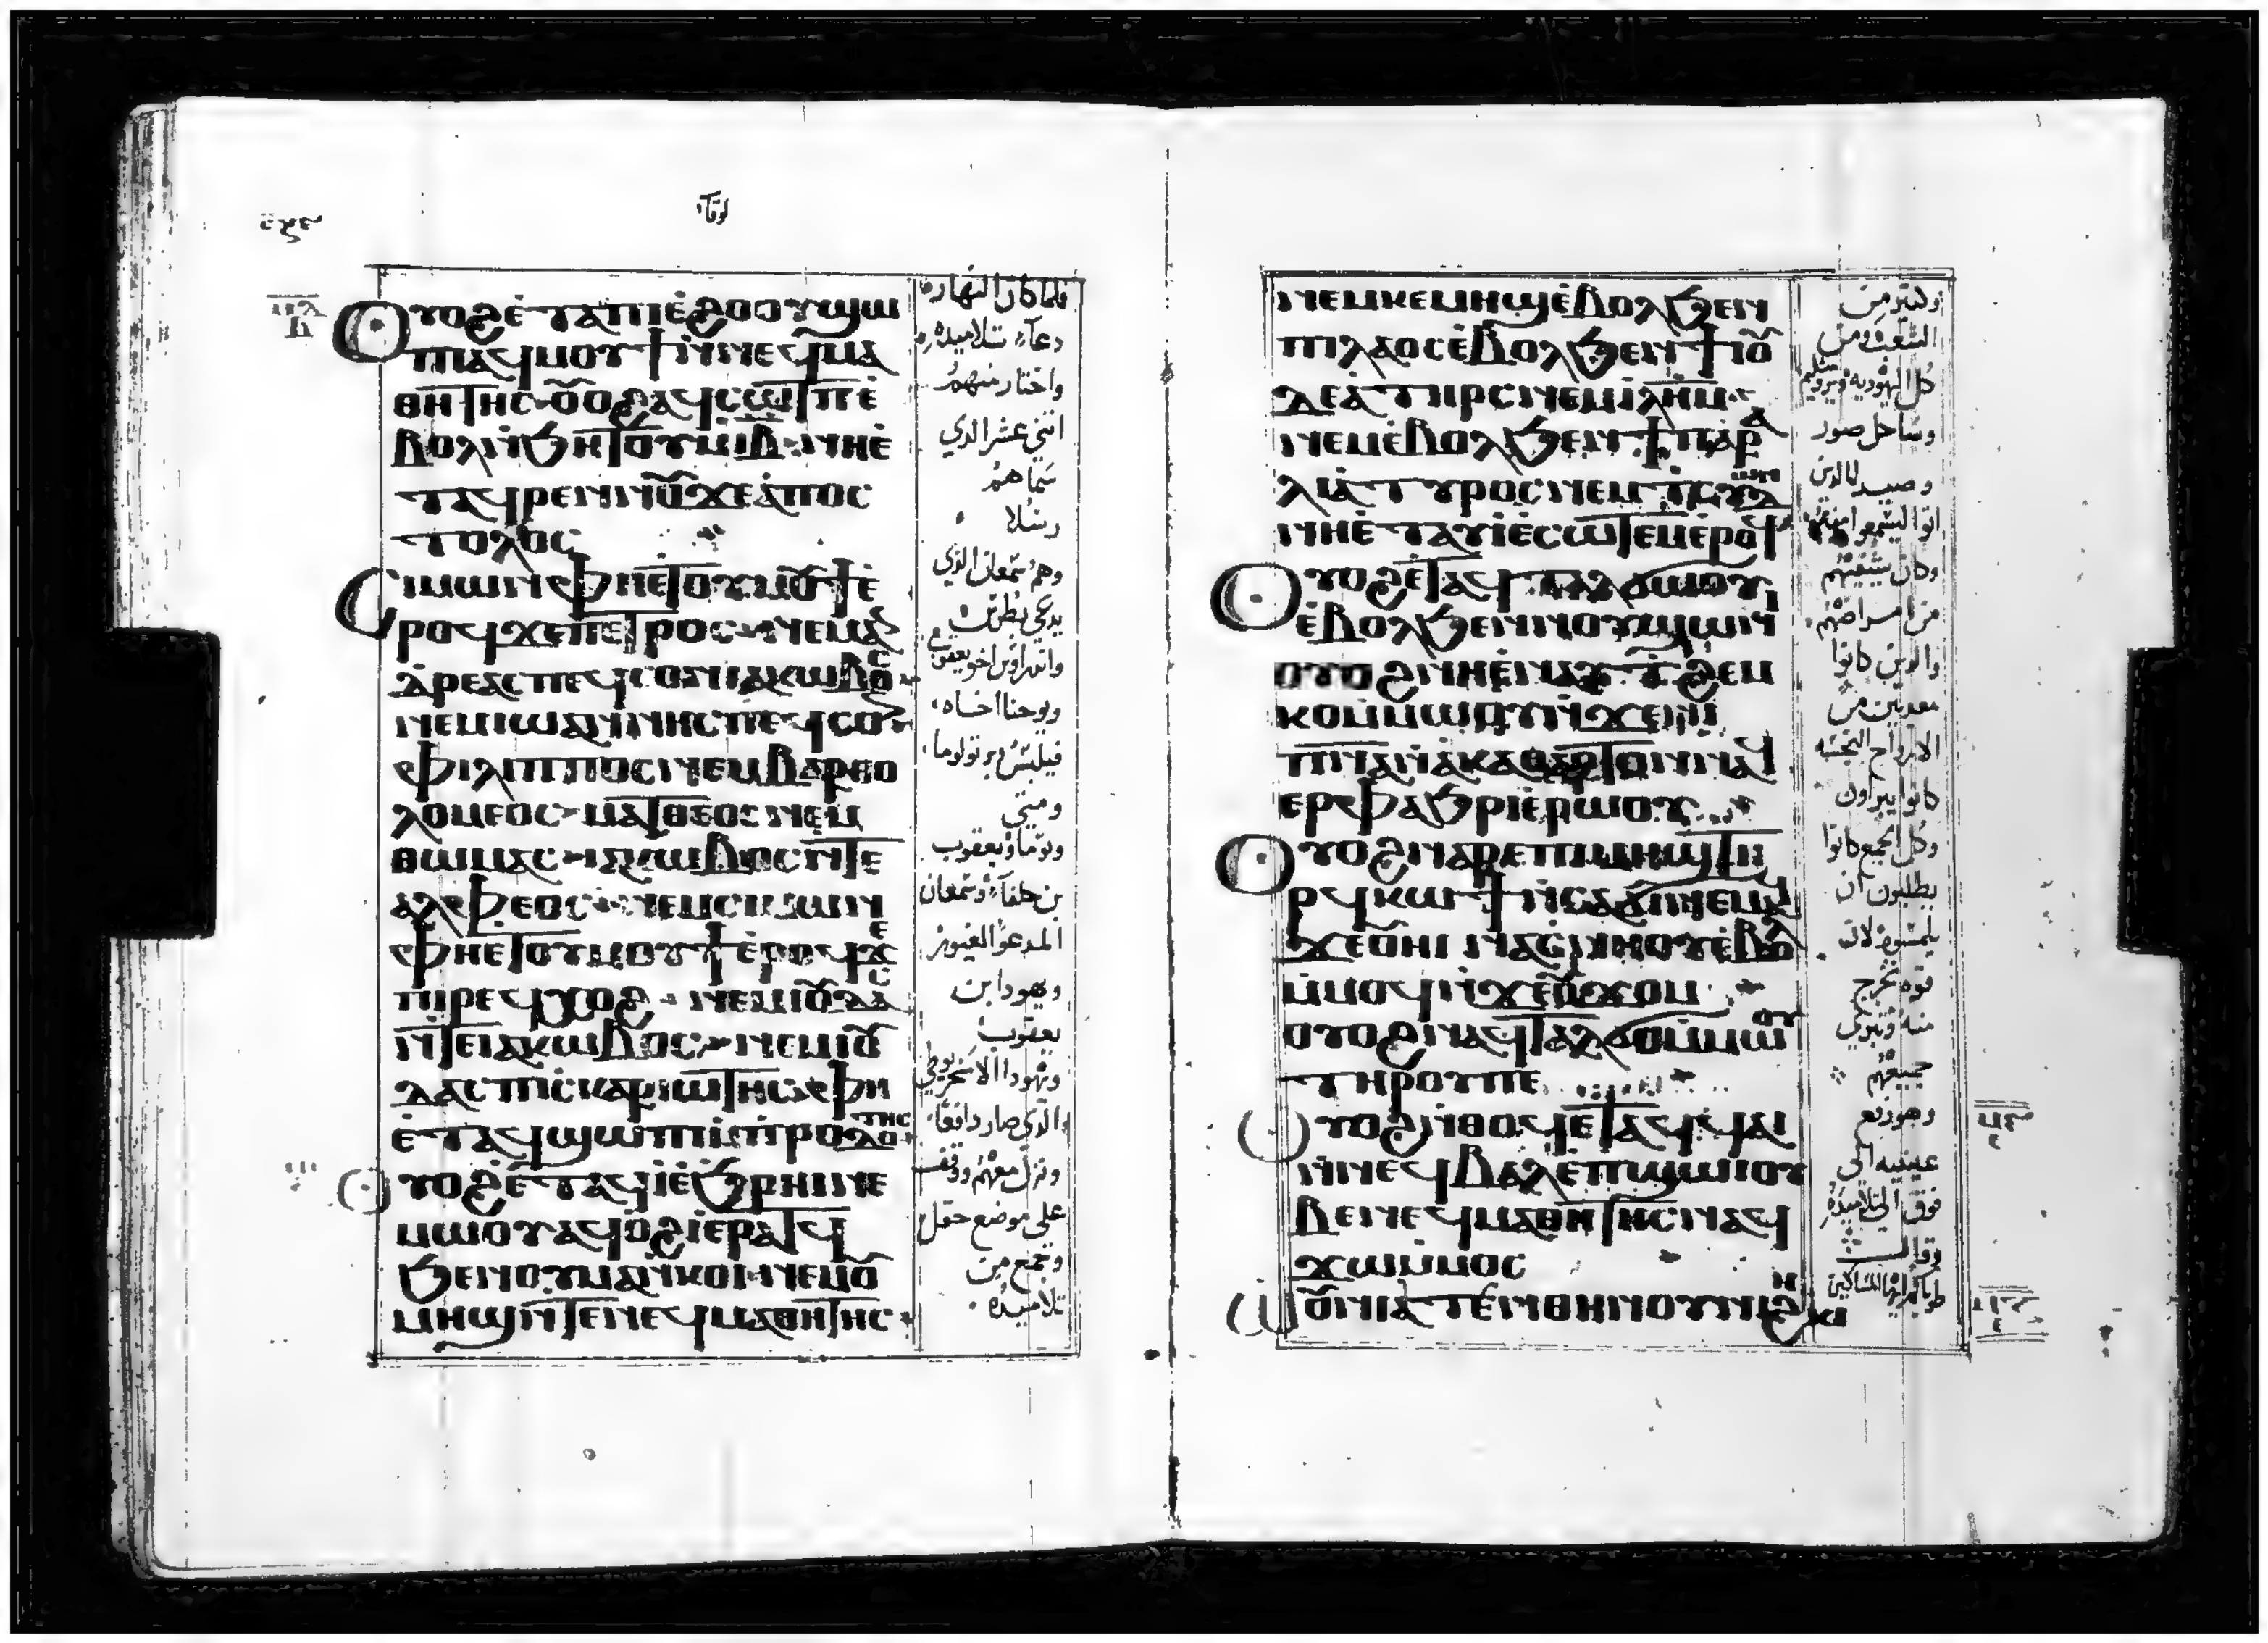 لوقا
ⲟⲩⲟϩ ⲉ̀ⲧⲁ ⲡⲓⲉ̀ϩⲟⲟⲩ ϣⲱ
ⲡⲓ ⲁϥⲙⲟⲩϯ ⲛ̀ⲛⲉϥⲙⲁ
ⲑⲏⲧⲏⲥ ⲟⲩⲟϩ ⲁϥⲥⲱⲧⲡ ⲉ̀
ⲃⲟⲗ ⲛ̀ϧⲏⲧⲟⲩ ⲙ̀ⲓⲃ ⲛⲏ ⲉ̀
ⲧⲁϥⲣⲉⲛⲛⲟⲩ ϫⲉ ⲁ̀ⲡⲟⲥ
ⲧⲟⲗⲟⲥ
ⲥⲓⲙⲱⲛ ⲫⲏⲉⲧⲟⲩⲙⲟⲩϯ ⲉ̀
ⲣⲟϥ ϫⲉ ⲡⲉⲧⲣⲟⲥ ⲛⲉⲙ ⲁⲛ
ⲇⲣⲉⲁⲥ ⲡⲉϥⲥⲟⲛ ⲓⲁⲕⲱⲃⲟⲥ
ⲛⲉⲙ ⲓⲱⲁⲛⲛⲏⲥ ⲡⲉϥⲥⲟⲛ
ⲫⲓⲗⲓⲡⲡⲟⲥ ⲛⲉⲙ ⲃⲁⲣⲑⲟ
ⲗⲟⲙⲉⲟⲥ ⲙⲁⲧⲑⲉⲟⲥ ⲛⲉⲙ
ⲑⲱⲙⲁⲥ ⲓⲁⲕⲱⲃⲟⲥ ⲛ̀ⲧⲉ
ⲁⲗⲫⲉⲟⲥ ⲛⲉⲙ ⲥⲓⲙⲱⲛ
ⲫⲏⲉⲧⲟⲩⲙⲟⲩϯ ⲉ̀ⲣⲟϥ ϫⲉ
ⲡⲓⲣⲉϥⲭⲟϩ ⲛⲉⲙ ⲓⲟⲩⲇⲁⲥ
ⲛ̀ⲧⲉ ⲓⲁⲕⲱⲃⲟⲥ ⲛⲉⲙ ⲓⲟⲩ
ⲇⲁⲥ ⲡⲓⲥⲕⲁⲣⲓⲱⲧⲏⲥ ⲫⲏ
ⲉ̀ⲧⲁϥϣⲱⲡⲓ ⲙ̀ⲡⲣⲟⲇⲟⲧⲏⲥ
ⲟⲩⲟϩ ⲉ̀ⲧⲁϥⲓ̀ ⲉ̀ϧⲣⲏⲓ ⲛⲉ
ⲙⲱⲟⲩ ⲁϥⲟ̀ϩⲓ ⲉ̀ⲣⲁⲧϥ
ϧⲉⲛ ⲟⲩⲙⲁ ⲛ̀ⲕⲟⲓ ⲛⲉⲙ ⲟⲩ
ⲙⲏϣ ⲛ̀ⲧⲉ ⲛⲉϥⲙⲁⲑⲏⲧⲏⲥ
فلما كان النهار
دعا تلاميذه
واختار منهم
اثني عشر الذي
سماهم
رسلا
وهم سمعان الذي
يدعى بطرس
واندراوس اخو يعقوب
ويوحنا اخاه
فيلبس برتولوما
ومتى
وتوما ويعقوب
بن حلفا وسمعان
المدعو الغيور
ويهودا بن
يعقوب
ويهودا الاسخريوطي
الذي صار دافعا
ونزل معهم ووقف
على موضع حقل
وجمع من
تلاميذه
ⲛⲉⲙ ⲕⲉⲙⲏϣ ⲉ̀ⲃⲟⲗ ϧⲉⲛ
ⲡⲓⲗⲁⲟⲥ ⲉ̀ⲃⲟⲗ ϧⲉⲛ ϯⲓⲟⲩ
ⲇⲉⲁ̀ ⲧⲏⲣⲥ ⲛⲉⲙ ⲓⲗⲏⲙ
ⲛⲉⲙ ⲉ̀ⲃⲟⲗ ϧⲉⲛ ϯⲡⲁⲣⲁ
ⲗⲓⲁ̀ ⲧⲩⲣⲟⲥ ⲛⲉⲙ ⲧⲥⲓⲇⲱⲛ
ⲛⲏ ⲉ̀ⲧⲁⲩⲓ̀ ⲉ̀ⲥⲱⲧⲉⲙ ⲉ̀ⲣⲟϥ
ⲟⲩⲟϩ ⲉ̀ⲧⲁϥⲧⲁⲗϭⲱⲟⲩ
ⲉ̀ⲃⲟⲗ ϧⲉⲛ ⲛⲟⲩϣⲱⲛⲓ
ⲟⲩⲟϩ ⲛⲏ ⲉ̀ⲛⲁⲩⲧ ϩⲉⲙ
ⲕⲟ ⲙ̀ⲙⲱⲟⲩ ⲛ̀ϫⲉ ⲛⲓ
ⲡⲛⲁ ⲛ̀ⲁ̀ⲕⲁⲑⲁⲣⲧⲟⲛ ⲛⲁϥ
ⲉⲣⲫⲁϧⲣⲓ ⲉ̀ⲣⲱⲟⲩ
ⲟⲩⲟϩ ⲛⲁⲣⲉ ⲡⲓⲙⲏϣ ⲧⲏ
ⲣϥ ⲕⲱϯ ⲛ̀ⲥⲁ ϭⲓ ⲛⲉⲙⲁϥ
ϫⲉ ⲟⲩⲏⲓ ⲛⲁⲥⲛⲏⲟⲩ ⲉ̀ⲃⲟⲗ
ⲙ̀ⲙⲟϥ ⲛ̀ϫⲉ ⲟⲩϫⲟⲙ
ⲟⲩⲟϩ ⲛⲁϥⲧⲁⲗϭⲟ ⲙ̀ⲙⲱⲟⲩ
ⲧⲏⲣⲟⲩ ⲡⲉ
ⲟⲩⲟϩ ⲛ̀ⲑⲟϥ ⲉ̀ⲧⲁϥϥⲁⲓ
ⲛ̀ⲛⲉϥⲃⲁⲗ ⲉ̀ⲡϣⲱⲓ ⲟⲩ
ⲃⲉ ⲛⲉϥⲙⲁⲑⲏⲧⲏⲥ ⲛⲁϥ
ϫⲱ ⲙ̀ⲙⲟⲥ
ⲱⲟⲩⲛⲓⲁⲧⲉⲛⲑⲏⲛⲟⲩ ⲛⲓϩⲏⲕⲓ
وكثير من
الشعب ومن
كل اليهودية ويروشليم
وساحل صور
وصيدا الذين
اتوا ليسمعوا منه
وكان يشفيهم
من امراضهم
والذين كانوا
معذبين من
الارواح النجسة
كانوا يبراون
وكل الجمع كانوا
يطلبون ان
يلمسوه لان
قوه تخرج
منه وتبري
جميعهم
وهو رفع
عينيه الى
فوق الى تلاميذه
وقال
طوباكم ايها المساكين